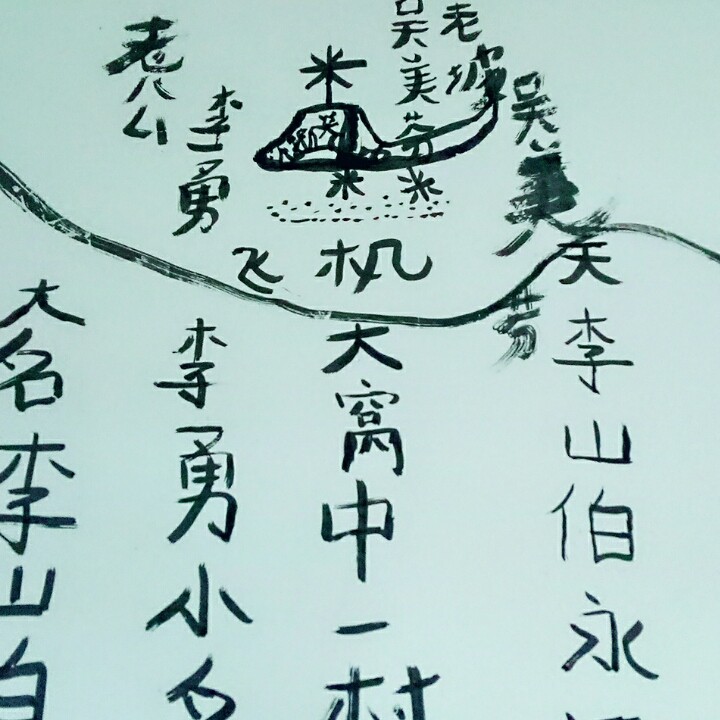 老公
李勇
吴美芬
老坡
吴美芳
飞机
大名李山伯
李勇小名
大窝中一村
天李山伯永